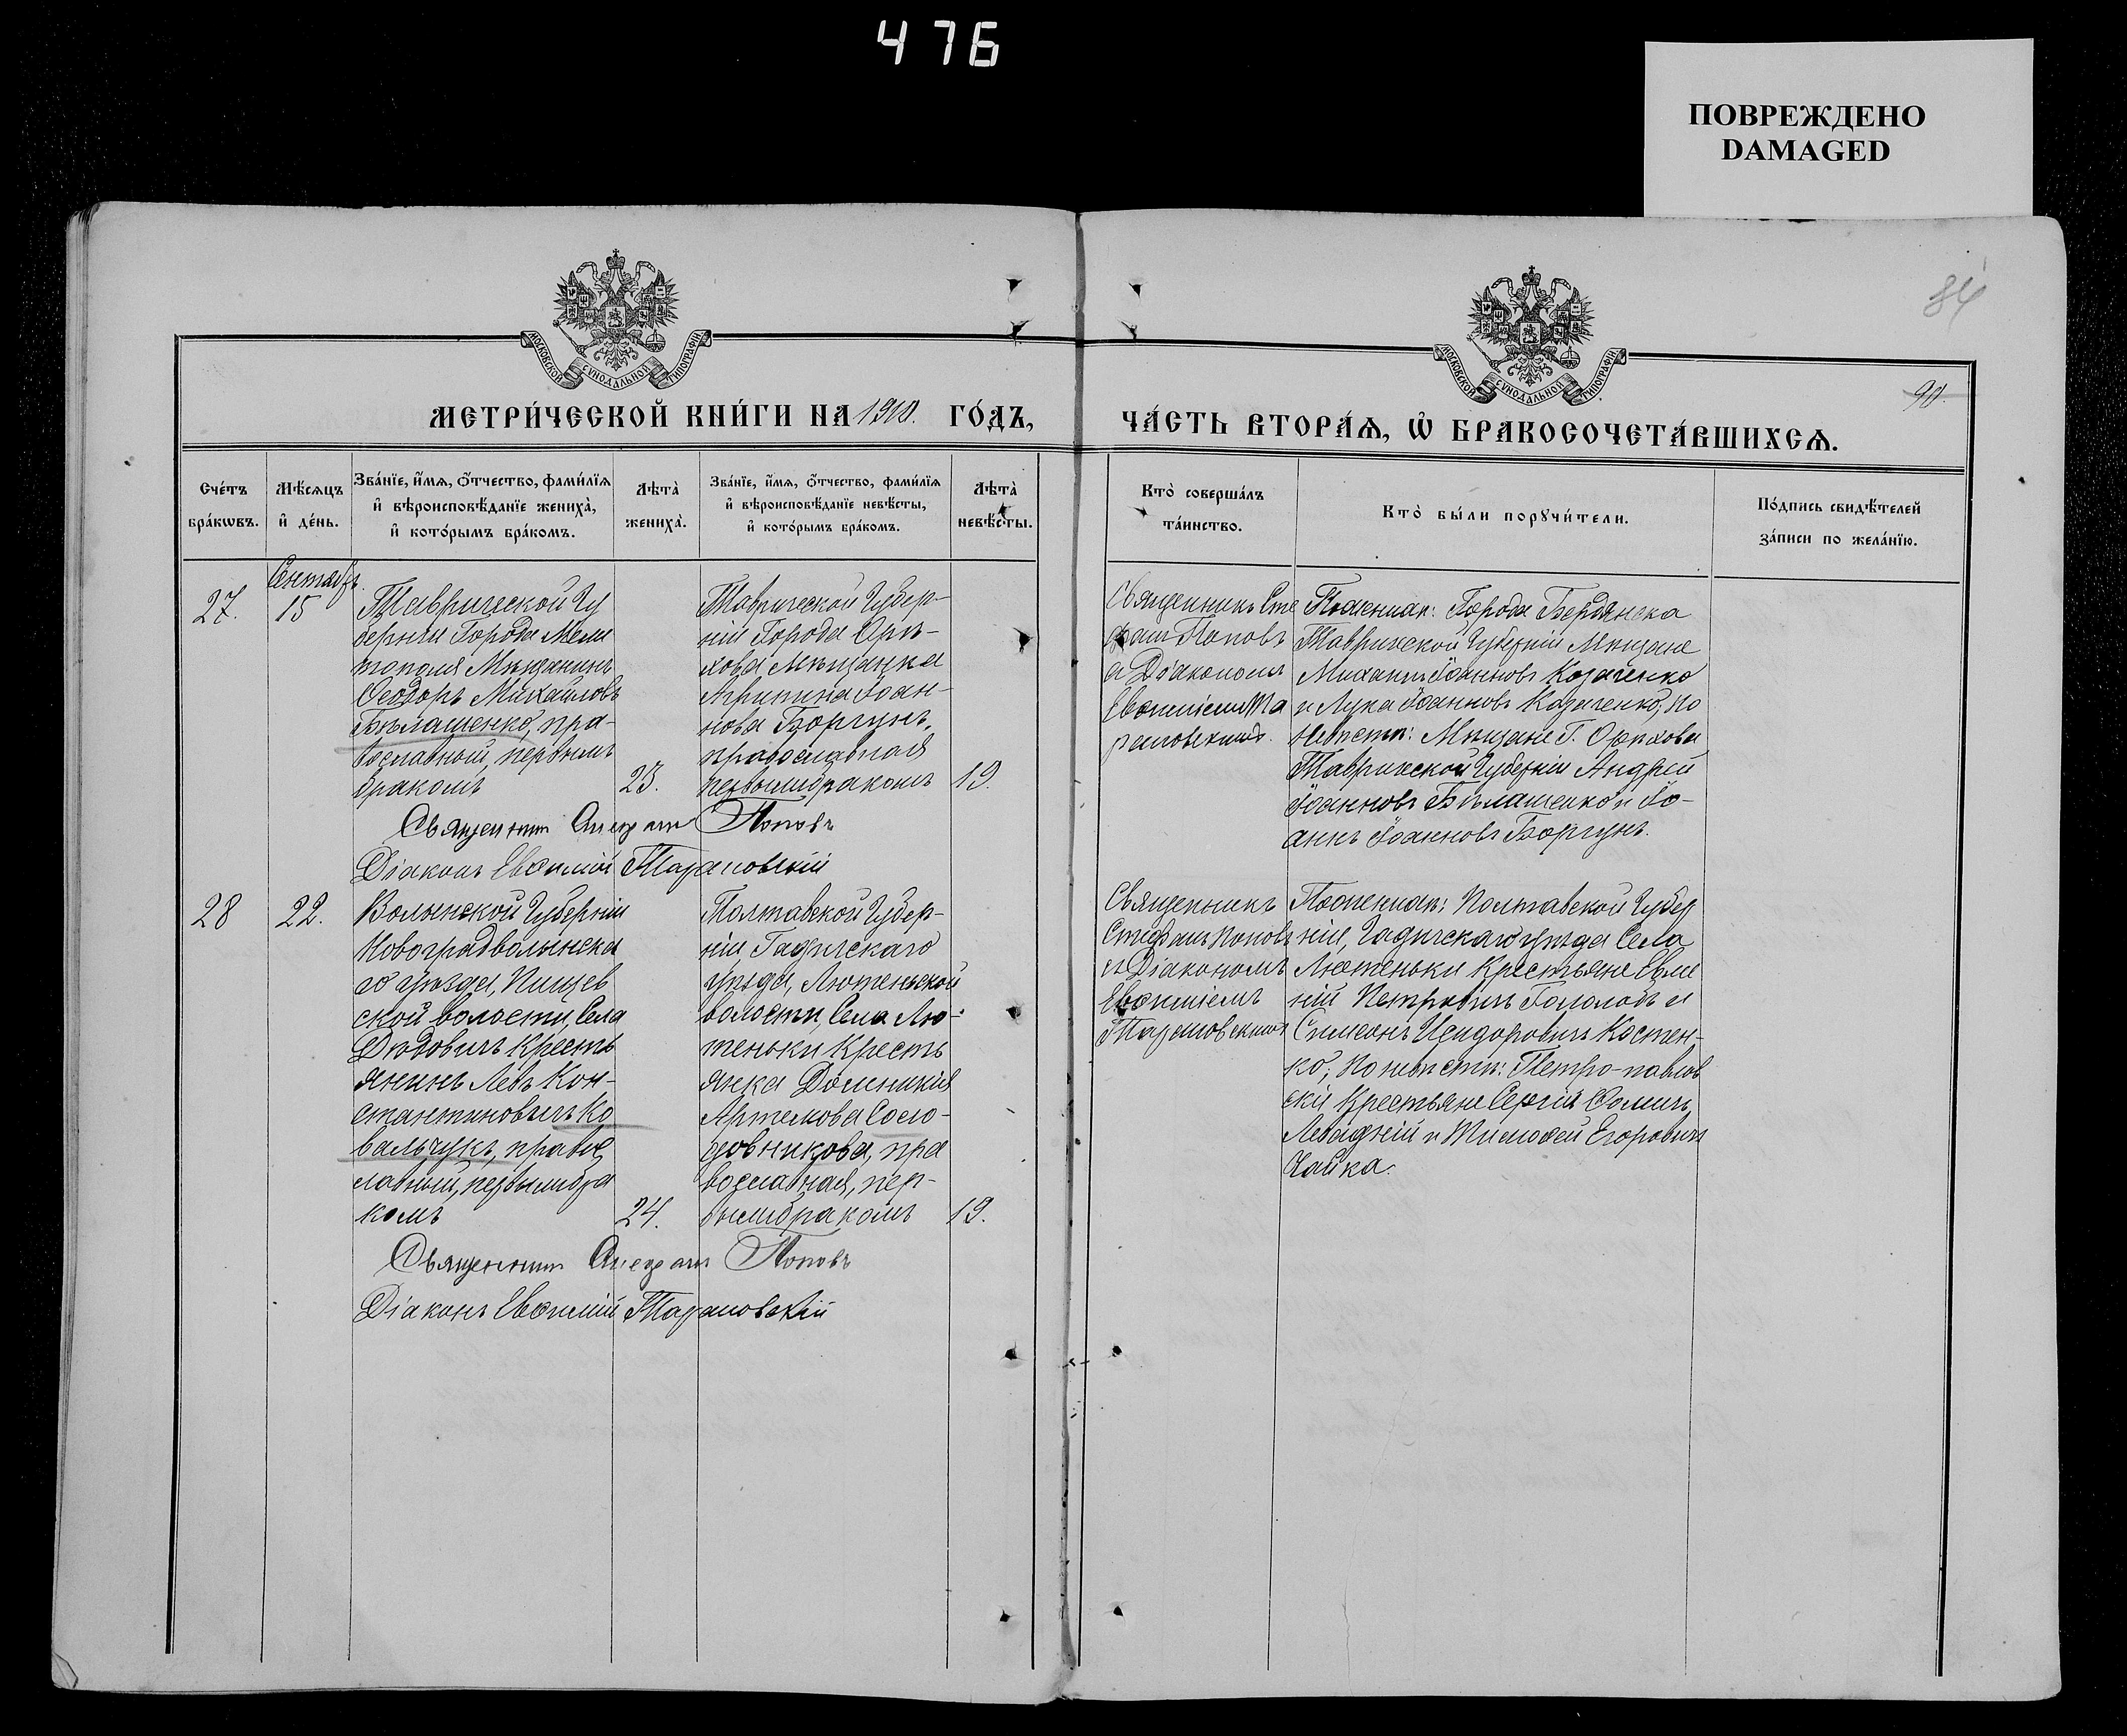 476
ПОВРЕЖДЕНО
DAMAGED
84
90.
МОСКОВСКОЙ СѴНОДАЛЬНОЙ ТИПОГРАФІИ
МОСКОВСКОЙ СѴНОДАЛЬНОЙ ТИПОГРАФІИ
МЕТРИ́ЧЕСКОЙ КНИ́ГИ НА 1910. ГО́ДЪ,
ЧА́СТЬ ВТОРА́Ѧ, Ѡ҆ БРАКОСОЧЕТА́ВШИХСѦ.
Сче́тъ
бра́кωвъ.
Мѣ́сѧцъ
и҆ де́нь.
Зва́нїе, и҆́мѧ, ѻ҆́тчество, фами́лїѧ
и҆ вѣроисповѣ́данїе жениха̀,
и҆ кото́рымъ бра́комъ.
Лѣта̀
жениха̀.
Зва́нїе, и҆́мѧ, ѻ҆́тчество, фами́лїѧ
и҆ вѣроисповѣ́данїе невѣ́сты,
и҆ кото́рымъ бра́комъ.
Лѣта̀
невѣ́сты.
Кто̀ соверша́лъ
та́инство.
Кто̀ бы́ли порꙋчи́тели.
По́дпись свидѣ́телей
за́писи по жела́нїю.
27.
Сентябрь
15
Таврической Гу
берніи Города Мели
тополя Мѣщанинъ
Ѳеодоръ Михайловъ
Бѣлашенко, пра-
вославный, первымъ
бракомъ
23.
Таврической Губер-
ніи Города Орѣ-
хова Мѣщанка
Агрипина Іоан-
нова Боргунъ,
православная
первымъ бракомъ
19.
Священникъ Сте
фанъ Поповъ
с Діакономъ
Евѳиміемъ Та
рановскимъ.
По женихѣ: Города Бердянска
Таврической Губерніи Мѣщане
Михаилъ Іоанновъ Козаченко
и Лука Іоанновъ Козаченко, по
невѣстѣ: Мѣщане Г. Орѣхова
Таврической Губерніи Андрей
Іоанновъ Бѣлашенко и Іо-
аннъ Іоанновъ Боргунъ.
Священникъ Стефанъ Поповъ
Діаконъ Евѳимій Тарановскій
28
22.
Волынской Губерніи
Новоградволынска
го уѣзда, Пищев
ской волости, Села
Дѣдовичъ Кресть
янинъ Левъ Кон-
стантиновичъ Ко
вальчукъ, правос
лавный, первымъ бра
комъ
24.
Полтавской Губер-
ніи, Гадячскаго
уѣзда, Лютеньской
волости, Села Лю-
теньки Кресть
янка Домникія
Артемова
пра
вославная, пер-
вымъ бракомъ
19.
Священникъ
Стефанъ Поповъ
съ Діакономъ
Евѳиміемъ
Тарановскимъ
По женихѣ: Полтавской Губер
ніи, Гадячскаго уѣзда Села
Лютеньки Крестьяне Евме
ній Петровичъ и
Симеонъ Исидоровичъ Костен-
ко; По невѣстѣ: Петро-павлов
скія Крестьяне Сергій Ѳомичъ
и Тимоѳей Егоровичъ
Чайка.
Священникъ Стефанъ Поповъ
Діаконъ Евѳимій Тарановскій